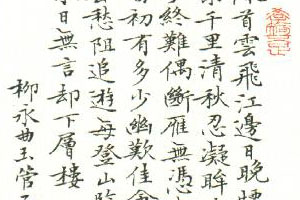 首雲飛江邊日晚煙
千里清秋忍凝眸
終難偶斷雁無憑
初有多少幽歡佳會
愁阻追遊每登山臨
日無言却下層樓
柳永曲玉管